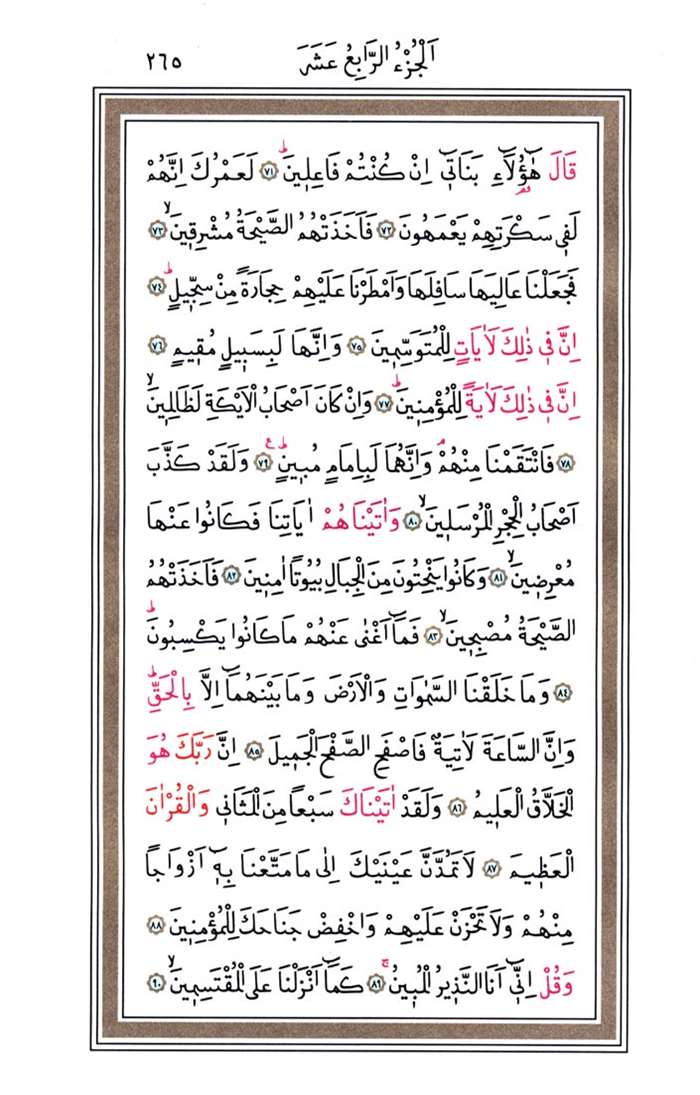 اَلْجُزْءُ الرَّابِعُ عَشَرَ ٢٦٥
قَالَ هٰٓؤُ۬لَٓاءِ بَنَاتٖٓي اِنْ كُنْتُمْ فَاعِلٖينَۜ ﴿٧١﴾ لَعَمْرُكَ اِنَّهُمْ
لَفٖي سَكْرَتِهِمْ يَعْمَهُونَ ﴿٧٢﴾ فَاَخَذَتْهُمُ الصَّيْحَةُ مُشْرِقٖينَۙ ﴿٧٣﴾
فَجَعَلْنَا عَالِيَهَا سَافِلَهَا وَاَمْطَرْنَا عَلَيْهِمْ حِجَارَةً مِنْ سِجّٖيلٍۜ ﴿٧٤﴾
اِنَّ فٖي ذٰلِكَ لَاٰيَاتٍ لِلْمُتَوَسِّمٖينَ ﴿٧٥﴾ وَاِنَّهَا لَبِسَبٖيلٍ مُقٖيمٍ ﴿٧٦﴾
اِنَّ فٖي ذٰلِكَ لَاٰيَةً لِلْمُؤْمِنٖينَۜ ﴿٧٧﴾ وَاِنْ كَانَ اَصْحَابُ الْاَيْكَةِ لَظَالِمٖينَۙ
﴿٧٨﴾ فَانْتَقَمْنَا مِنْهُمْۢ وَاِنَّهُمَا لَبِاِمَامٍ مُبٖينٍۜ ﴿٧٩﴾ وَلَقَدْ كَذَّبَ
اَصْحَابُ الْحِجْرِ الْمُرْسَلٖينَۙ ﴿٨٠﴾ وَاٰتَيْنَاهُمْ اٰيَاتِنَا فَكَانُوا عَنْهَا
مُعْرِضٖينَۙ ﴿٨١﴾ وَكَانُوا يَنْحِتُونَ مِنَ الْجِبَالِ بُيُوتاً اٰمِنٖينَ ﴿٨٢﴾ فَاَخَذَتْهُمُ
الصَّيْحَةُ مُصْبِحٖينَۙ ﴿٨٣﴾ فَمَٓا اَغْنٰى عَنْهُمْ مَا كَانُوا يَكْسِبُونَۜ
﴿٨٤﴾ وَمَا خَلَقْنَا السَّمٰوَاتِ وَالْاَرْضَ وَمَا بَيْنَهُمَٓا اِلَّا بِالْحَقِّۜ
وَاِنَّ السَّاعَةَ لَاٰتِيَةٌ فَاصْفَحِ الصَّفْحَ الْجَمٖيلَ ﴿٨٥﴾ اِنَّ رَبَّكَ هُوَ
الْخَلَّاقُ الْعَلٖيمُ ﴿٨٦﴾ وَلَقَدْ اٰتَيْنَاكَ سَبْعاً مِنَ الْمَثَانٖي وَالْقُرْاٰنَ
الْعَظٖيمَ ﴿٨٧﴾ لَا تَمُدَّنَّ عَيْنَيْكَ اِلٰى مَا مَتَّعْنَا بِهٖٓ اَزْوَاجاً
مِنْهُمْ وَلَا تَحْزَنْ عَلَيْهِمْ وَاخْفِضْ جَنَاحَكَ لِلْمُؤْمِنٖينَ ﴿٨٨﴾
وَقُلْ اِنّٖٓي اَنَا النَّذٖيرُ الْمُبٖينُۚ ﴿٨٩﴾ كَمَٓا اَنْزَلْنَا عَلَى الْمُقْتَسِمٖينَۙ ﴿٩٠﴾